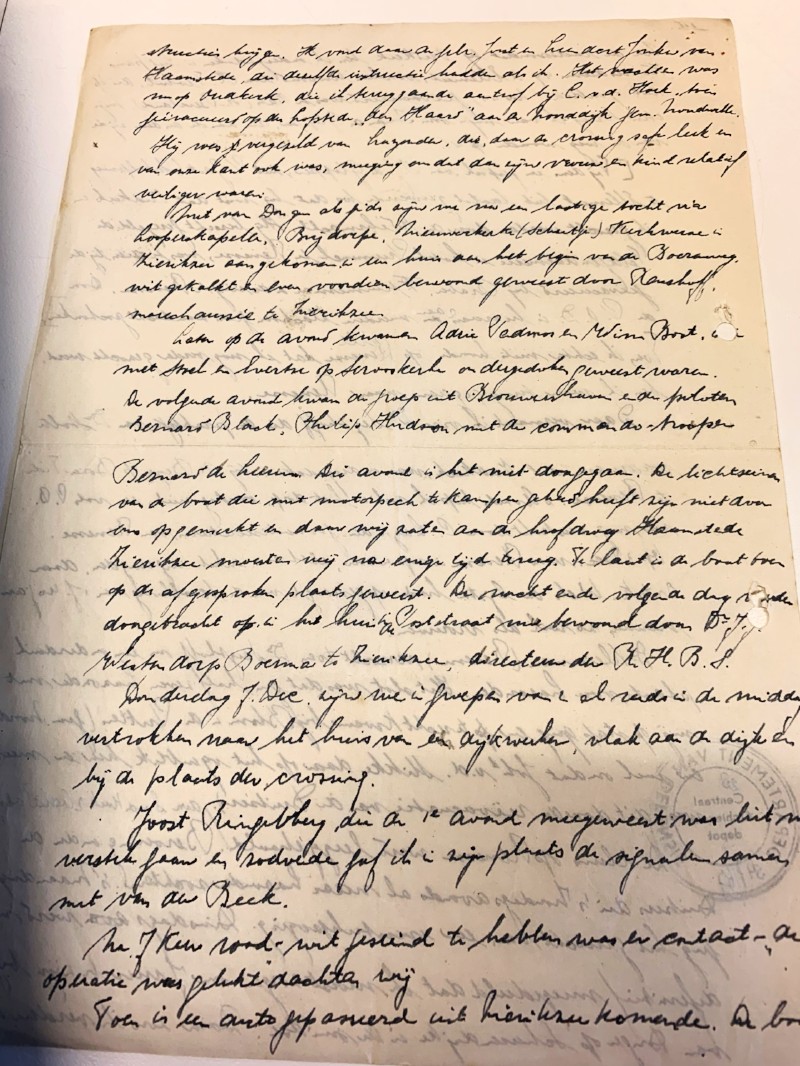 structies krijgen. Ik vond daar de gebr. Joost en Leendert Jonker van
Haamstede, die dezelfde instructie hadden als ik. Het wachten was
nu op Oudkerk, die ik teruggaande aantrof bij C. v.d. Hoek, toen
geëvacueerd op de hofstede "den Haard" aan de Noorddijk gem. Noordwelle.
Hij was vergezeld van Lazonder, die, daar de crossing safe leek en
van onze kant ook was, meeging omdat dan zijn vrouw en kind relatief
veiliger waren.
Met van Dongen als gids zijn we na een lastige tocht via
Looperskapelle, Brijdorpe, Nieuwerkerke (Schutje) Kerkwerve in
Zierikzee aangekomen in een huis aan het begin van de Boerenweg.
wit gekalkt en even voordien bewoond geweest door
marechaussee te Zierikzee.
Later op de avond kwamen Adrie Padmos en Wim Boot, die
met Stoel en Evertse op Serooskerke ondergedoken geweest waren.
De volgende avond kwam de groep uit Brouwershaven en de piloten
Bernard Black, Philip Hudson met de commando-troopen
Bernard de Lieuw. Die avond is het niet doorgegaan. De lichtseinen
van de boot die met motorpech te kampen gehad heeft zijn niet door
ons opgemerkt en daar wij zaten aan de hoofdweg Haamstede
Zierikzee moesten wij na enige tijd terug. Te laat is de boot toen
op de afgesproken plaats geweest. De nacht en de volgende dag werden
doorgebracht op in het huis i/d Poststraat nu bewoond door Dr. J. J.
Westendorp Boerma te Zierikzee, directeur der R. H. B. S.
Donderdag 7 Dec. zijn we in groepen van 2 al reeds in de middag
vertrokken naar het huis van een dijkwerker, vlak aan de dijk en
bij de plaats der crossing.
Joost Ringelberg die de 1e avond meegeweest was liet
verstek gaan en zodoende gaf ik in zijn plaats de signalen samen
met van der Beek.
Na 7 keer rood-wit geseind te hebben was er contact - de
operatie was gelukt dachten wij
Toen is een auto gepasseerd uit Zierikzee komende. De boot
Centraal
depot